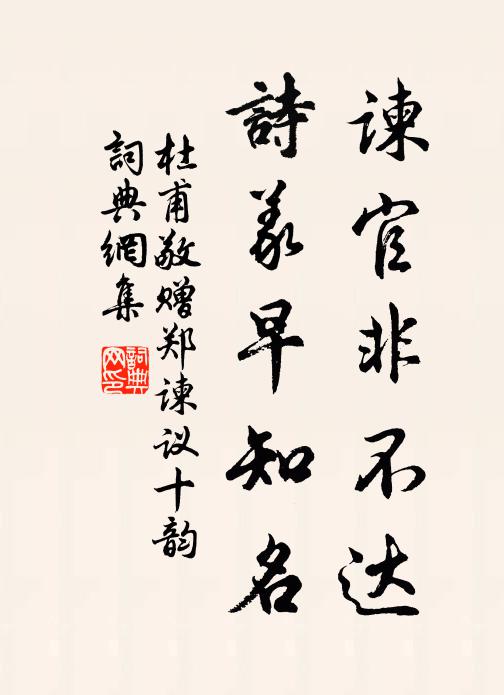 谏官非不达
詩義早知名
杜甫敬赠郑谏议十韵
詞典網集
詞典网印